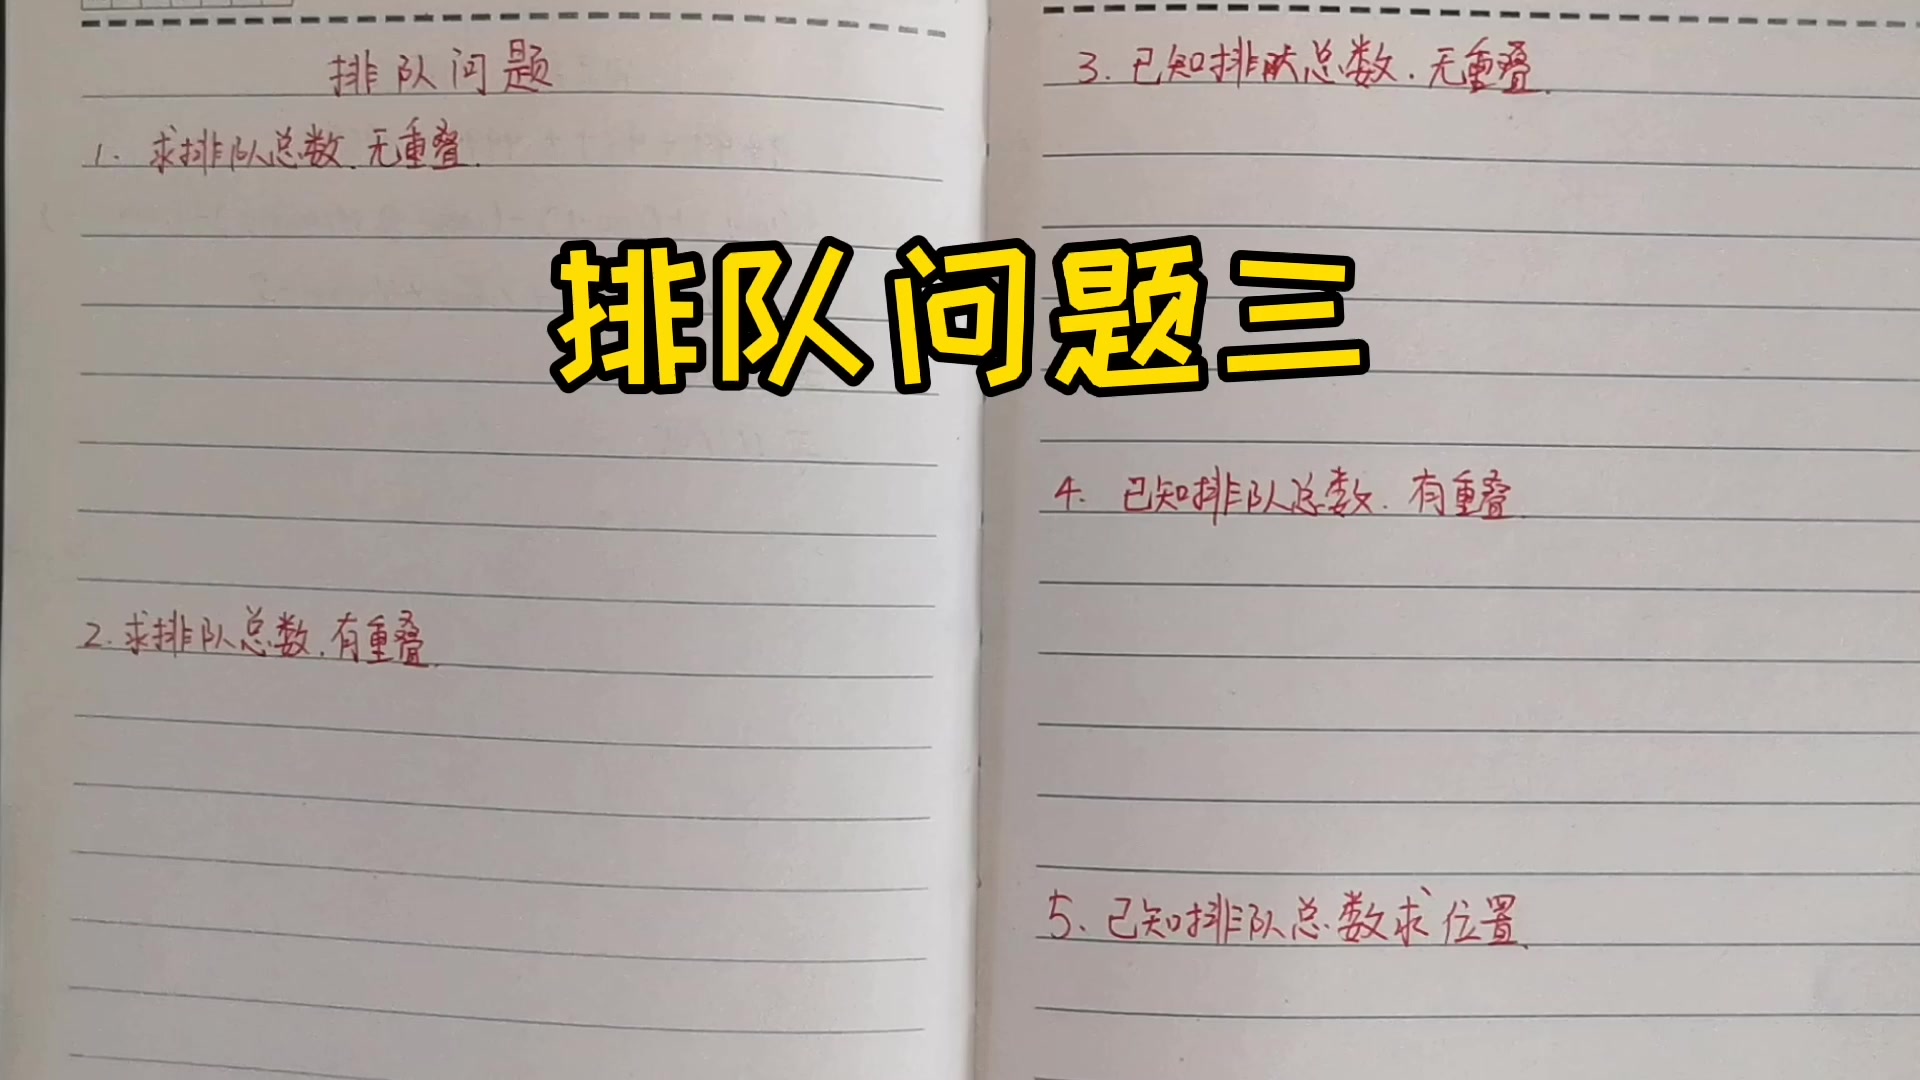 排队问题
1. 求排队总数.无重叠.
2. 求排队总数.有重叠.
3. 已知排队总数.无重叠.
4. 已知排队总数.有重叠.
5. 已知排队总数求位置.
排队问题三